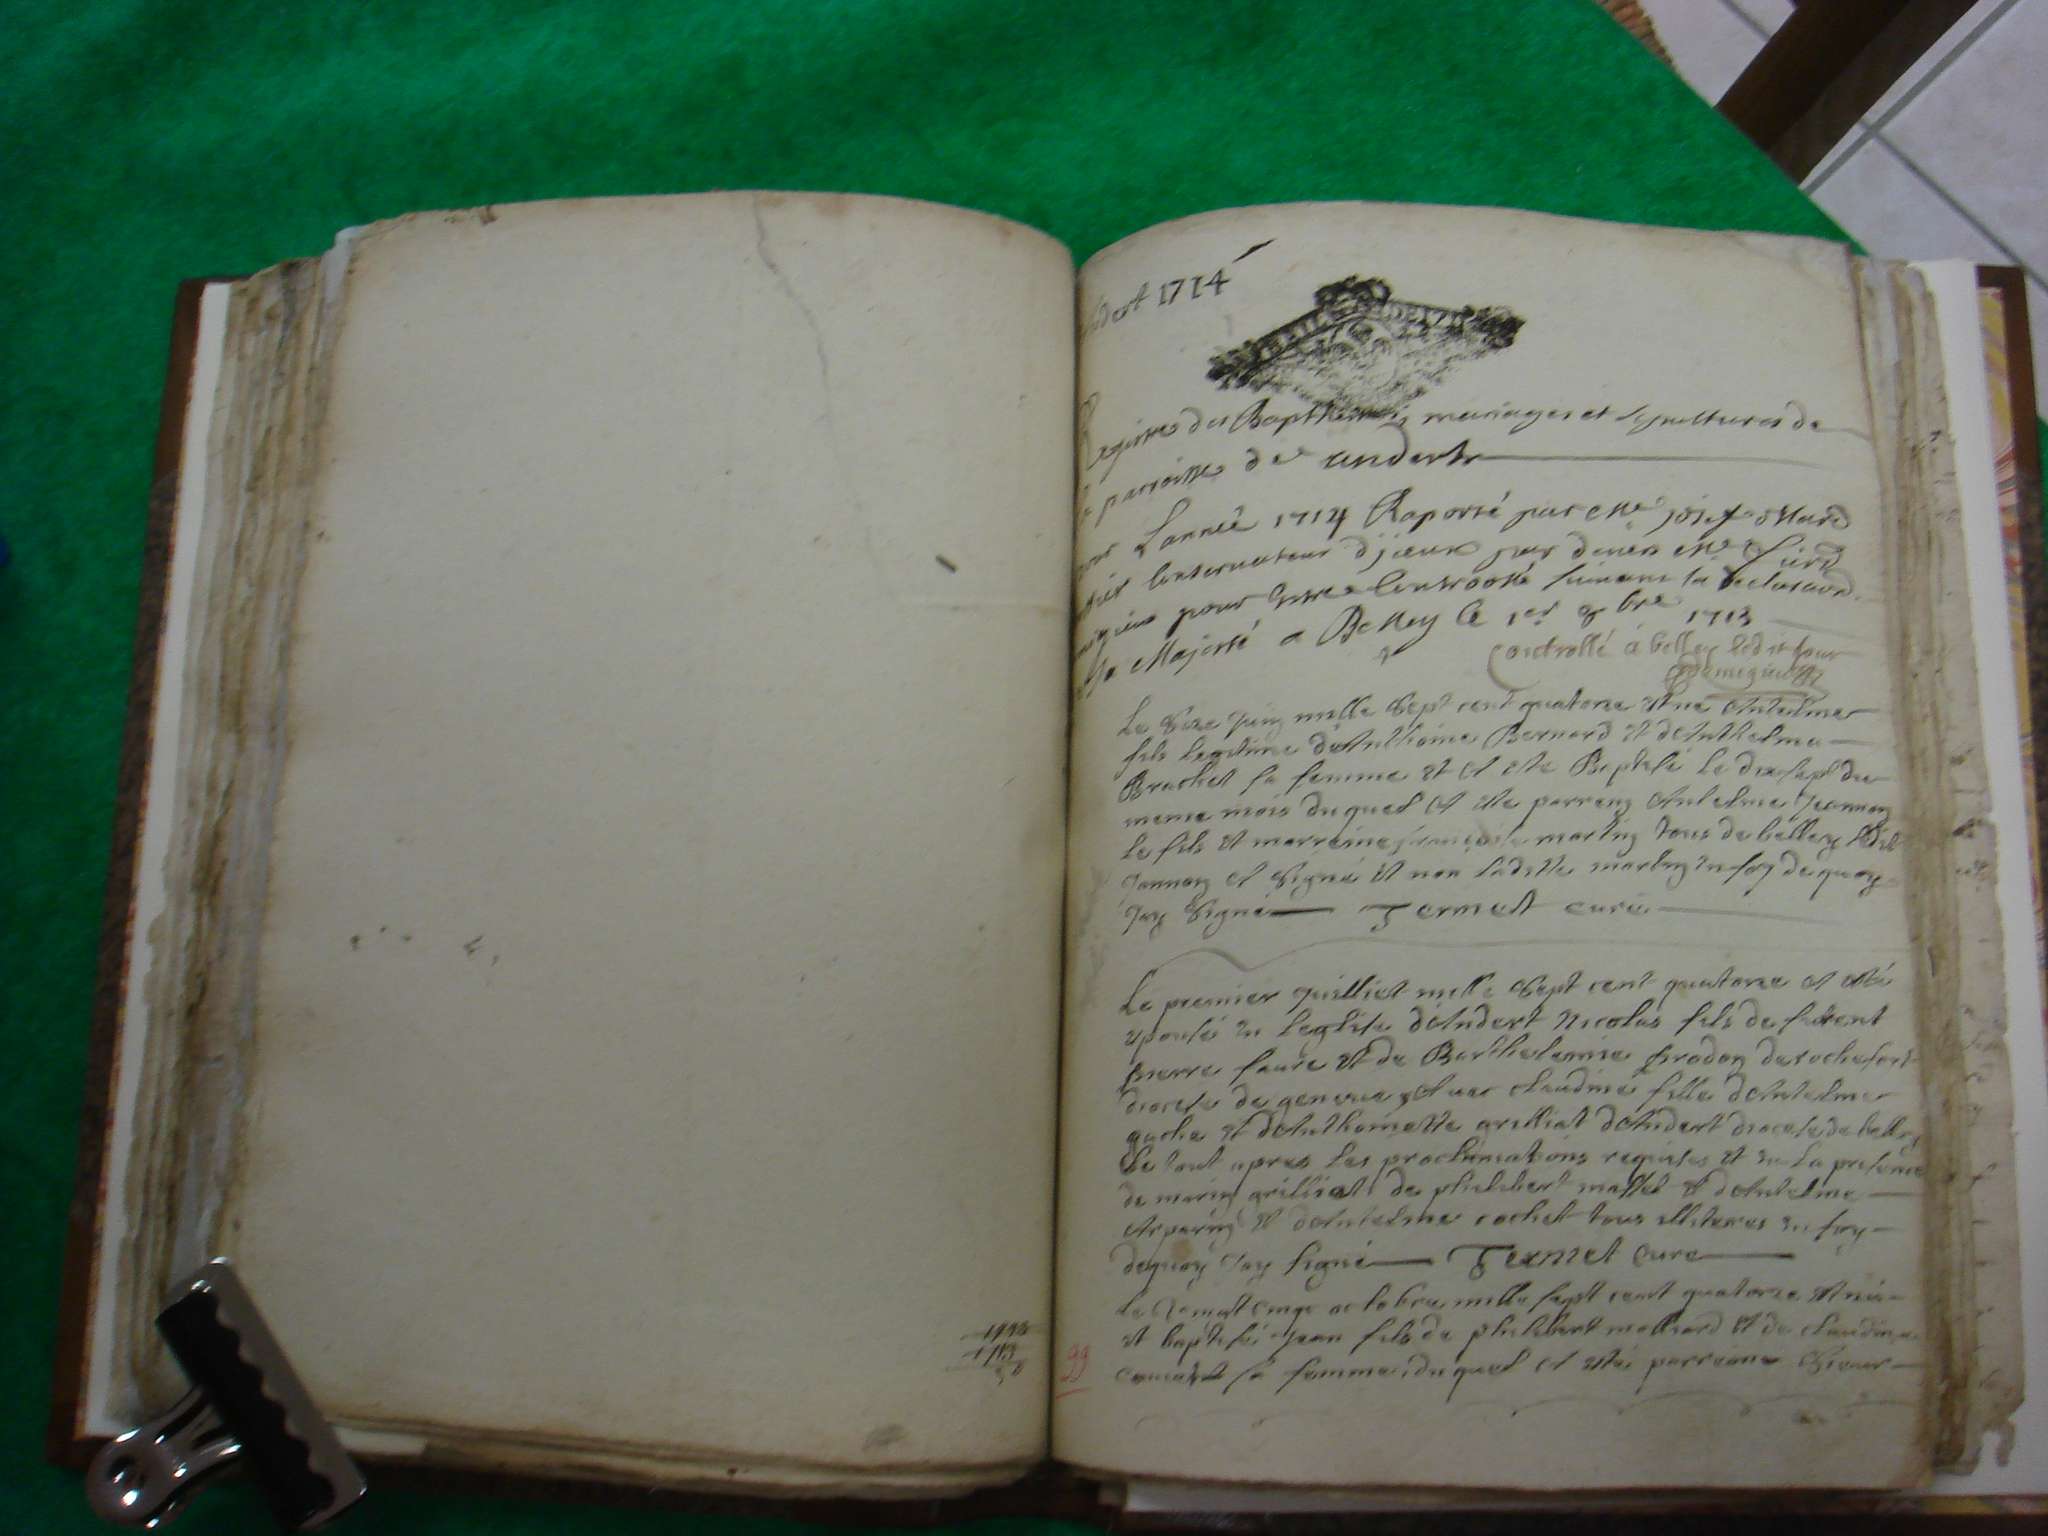 1793
1713
80
Andert 1714
Registre des Bapthemes, mariages et sepultures de
la parroisse de andert
pour Lannée 1714 Raporté par Me josef
Conservateur par devers Me
pour estre Controollé suivant la declaraon
de Sa Majesté a Belley le 1er 8bre 1713
Controllé à belley ledit jour
Le seze juin mille sept cent quatorze est né Antelme
fils legitime d'Anthoine Bernard et d'Anthelma
Brachet sa femme et a ete Baptisé le dix sept du
meme mois duquel a ete parrein Antelme Jannon
le fils et marreine françoise martin tous de belley ledit
Jannon a signé et non laditte martin en foy de quoy
Jay signé Termet curé
Le premier juilliet mille sept cent quatorze a esté
epousé en leglise dAndert Nicolas fils de
pierre faure et de Barthelemie brodon de rochefort
diocese de geneve avec claudine fille dAntelme
gache et dAnthoinette grilliat dAndert diocese de belley
le tout apres les proclamations requises et en la presence
de marin grilliat de philibert massel et dAntelme
Arparin et dAntelme cochet tous illiteres en foy
dequoy Jay signé Termet curé
Le vingt cinq octobre mille sept cent quatorze est né
et baptisé jean fils de philibert molliard et de claudine
sa femme duquel a esté parreine Sieur
99